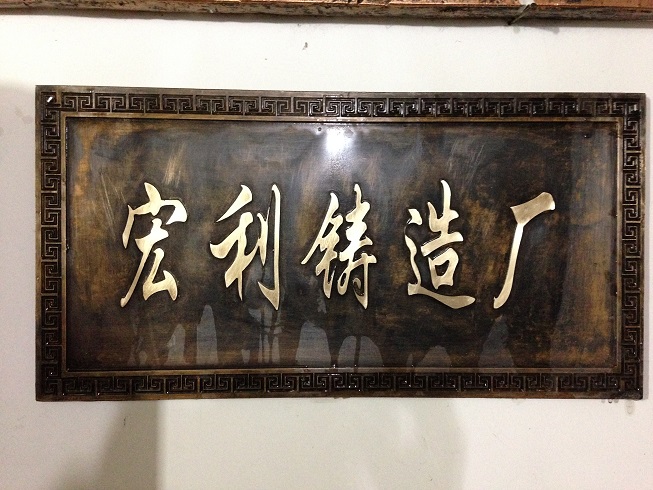 宏利铸造厂